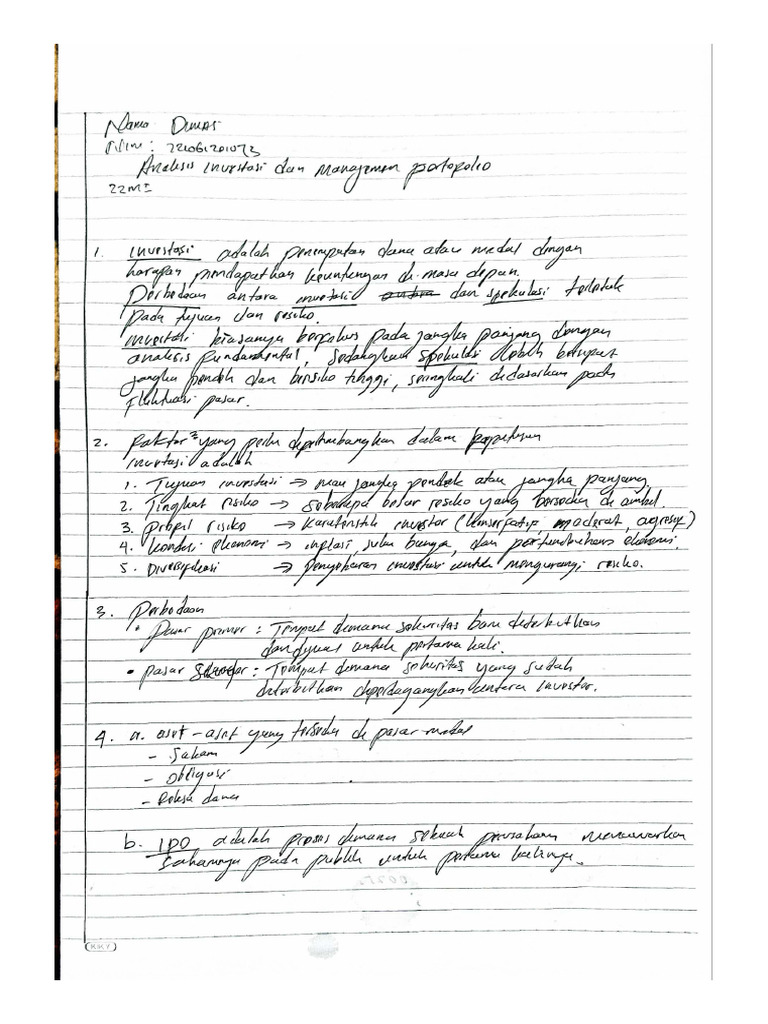 Nama Dimas
NIM : 221061201073
Analisis investasi dan manajemen portopolio
22MI
1. Investasi adalah penempatan dana atau modal dengan
harapan mendapatkan keuntungan di masa depan.
Perbedaan antara investasi antara dan spekulasi terletak
pada tujuan dan resiko.
investasi biasanya berpokus pada jangka panjang dengan
analisis fundamental, sedangkan spekulasi lebih bersipat
jangka pendek dan berisiko tinggi, seringkali didasarkan pada
fluktuasi pasar.
2. Faktor² yang perlu dipertimbangkan dalam keputusan
invertasi adalah
1. Tujuan investasi → mau jangka pendek atau jangka panjang.
2. Tingkat risiko → seberapa besar resiko yang bersedia di ambil.
3. Propil risiko → karakteristik investor (konserpatip moderat, agresip)
4. kondisi ekonomi → inplasi, suku bunga, dan pertumbuhan ekonomi.
5. Diversipikasi → penyebaran investasi untuk mengurangi resiko.
3. Perbedaan
• Pasar primer : Tempat dimana sekuritas baru diterbitkan
dan dijual untuk pertama kali.
• pasar sekunder : Tempat dimana sekuritas yang sudah
diterbitkan diperdagangkan antara investor.
4. a. aset - aset yang tersedia di pasar modal
- Saham
- Obligasi
- Reksa dana
b. IPO adalah proses dimana sebuah perusahaan menawarkan
sahamnya pada publik untuk pertama kalinya.
KIKY